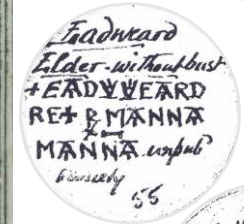 Eadweard
Elder - without bust
+EADVVEARD
RE+ 
MANNA
MANNA unpubd
55